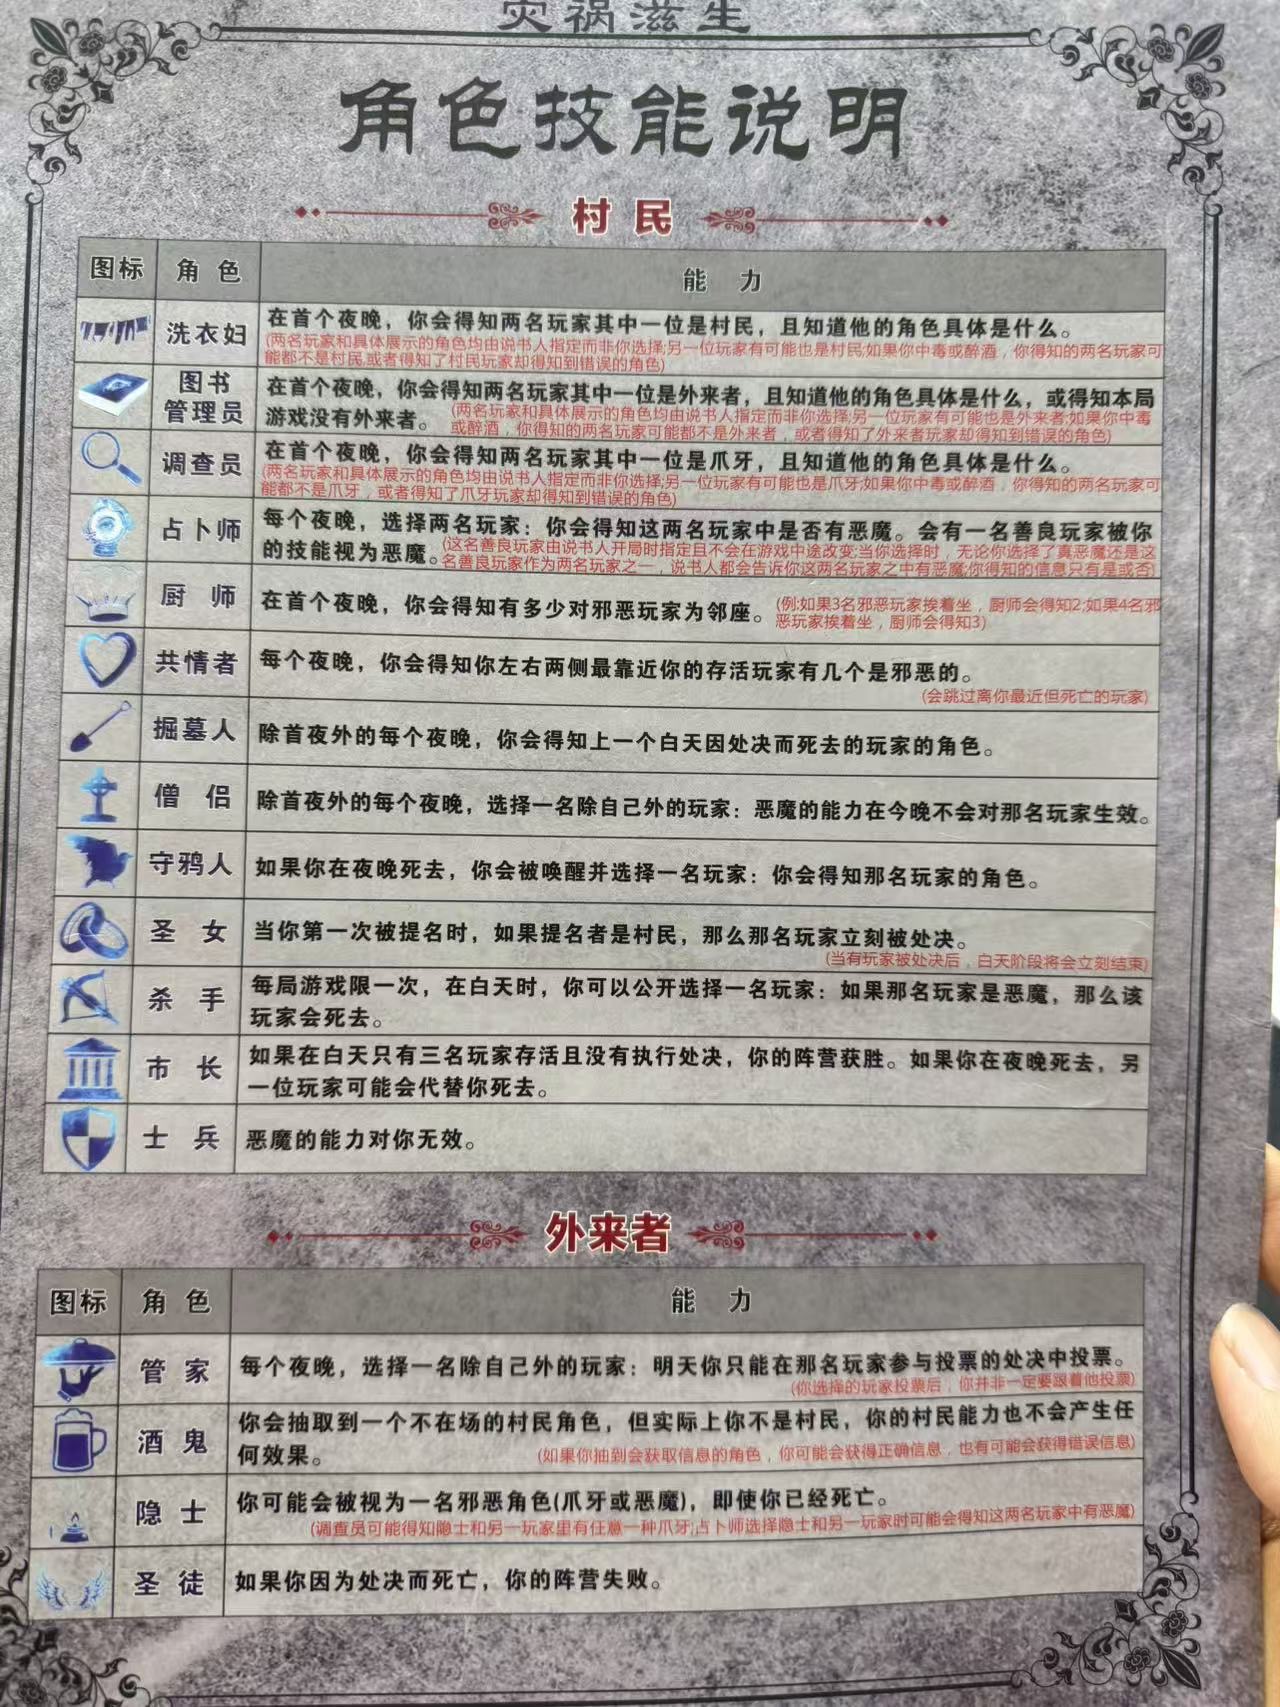 灾祸滋生
角色技能说明
村民
图标 角色 能力
洗衣妇 在首个夜晚，你会得知两名玩家其中一位是村民，且知道他的角色具体是什么。
(两名玩家和具体展示的角色均由说书人指定而非你选择;另一位玩家有可能也是村民;如果你中毒或醉酒，你得知的两名玩家可
能都不是村民,或者得知了村民玩家却得知到错误的角色)
图书
管理员
在首个夜晚，你会得知两名玩家其中一位是外来者，且知道他的角色具体是什么，或得知本局
游戏没有外来者。(两名玩家和具体展示的角色均由说书人指定而非你选择;另一位玩家有可能也是外来者;如果你中毒
或醉酒，你得知的两名玩家可能都不是外来者，或者得知了外来者玩家却得知到错误的角色)
调查员 在首个夜晚，你会得知两名玩家其中一位是爪牙，且知道他的角色具体是什么。
(两名玩家和具体展示的角色均由说书人指定而非你选择;另一位玩家有可能也是爪牙;如果你中毒或醉酒，你得知的两名玩家可
能都不是爪牙，或者得知了爪牙玩家却得知到错误的角色)
占卜师 每个夜晚，选择两名玩家：你会得知这两名玩家中是否有恶魔。会有一名善良玩家被你
的技能视为恶魔。(这名善良玩家由说书人开局时指定且不会在游戏中途改变;当你选择时，无论你选择了真恶魔还是这
名善良玩家作为两名玩家之一，说书人都会告诉你这两名玩家之中有恶魔;你得知的信息只有是或否)
厨师 在首个夜晚，你会得知有多少对邪恶玩家为邻座。(例:如果3名邪恶玩家挨着坐，厨师会得知2;如果4名邪
恶玩家挨着坐，厨师会得知3)
共情者 每个夜晚，你会得知你左右两侧最靠近你的存活玩家有几个是邪恶的。
(会跳过离你最近但死亡的玩家)
掘墓人 除首夜外的每个夜晚，你会得知上一个白天因处决而死去的玩家的角色。
僧侣 除首夜外的每个夜晚，选择一名除自己外的玩家：恶魔的能力在今晚不会对那名玩家生效。
守鸦人 如果你在夜晚死去，你会被唤醒并选择一名玩家：你会得知那名玩家的角色。
圣女 当你第一次被提名时，如果提名者是村民，那么那名玩家立刻被处决。
(当有玩家被处决后，白天阶段将会立刻结束)
杀手 每局游戏限一次，在白天时，你可以公开选择一名玩家：如果那名玩家是恶魔，那么该
玩家会死去。
市长 如果在白天只有三名玩家存活且没有执行处决，你的阵营获胜。如果你在夜晚死去，另
一位玩家可能会代替你死去。
士兵 恶魔的能力对你无效。
外来者
图标 角色 能力
管家 每个夜晚，选择一名除自己外的玩家：明天你只能在那名玩家参与投票的处决中投票。
(你选择的玩家投票后，你并非一定要跟着他投票)
酒鬼 你会抽取到一个不在场的村民角色，但实际上你不是村民，你的村民能力也不会产生任
何效果。(如果你抽到会获取信息的角色，你可能会获得正确信息，也有可能会获得错误信息)
隐士 你可能会被视为一名邪恶角色(爪牙或恶魔)，即使你已经死亡。
(调查员可能得知隐士和另一玩家里有任意一种爪牙;占卜师选择隐士和另一玩家时可能会得知这两名玩家中有恶魔)
圣徒 如果你因为处决而死亡，你的阵营失败。